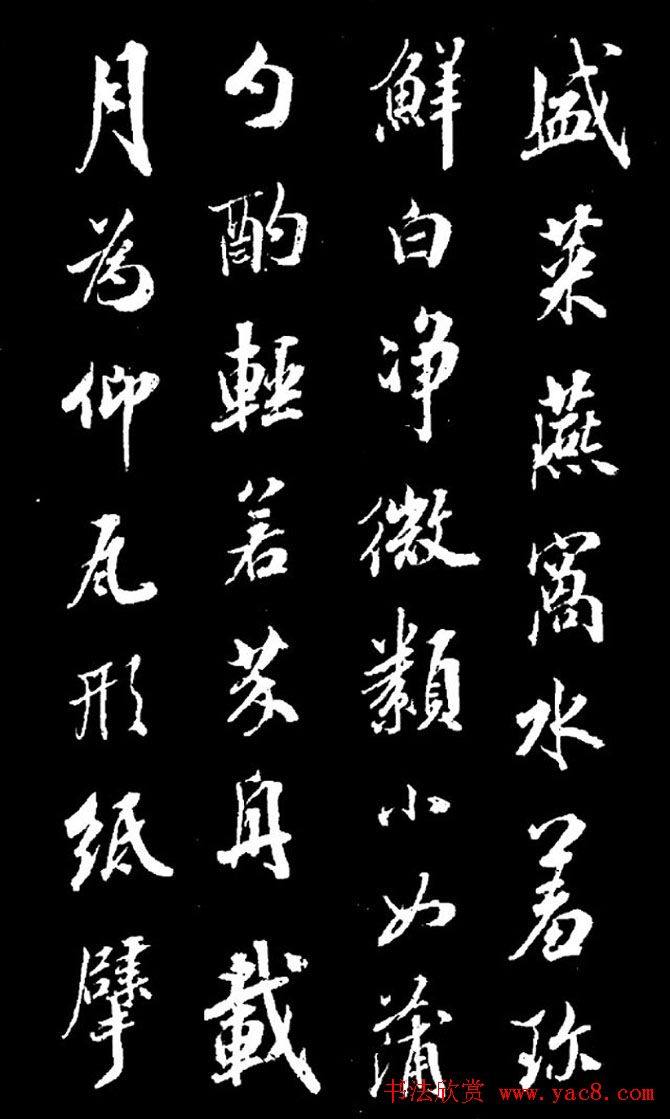 盛菜燕窩水着弥
鮮白净微類小如蒲
勺酌輕若芥舟載
月為仰瓦形紙擘
书法欣赏 www.yac8.com